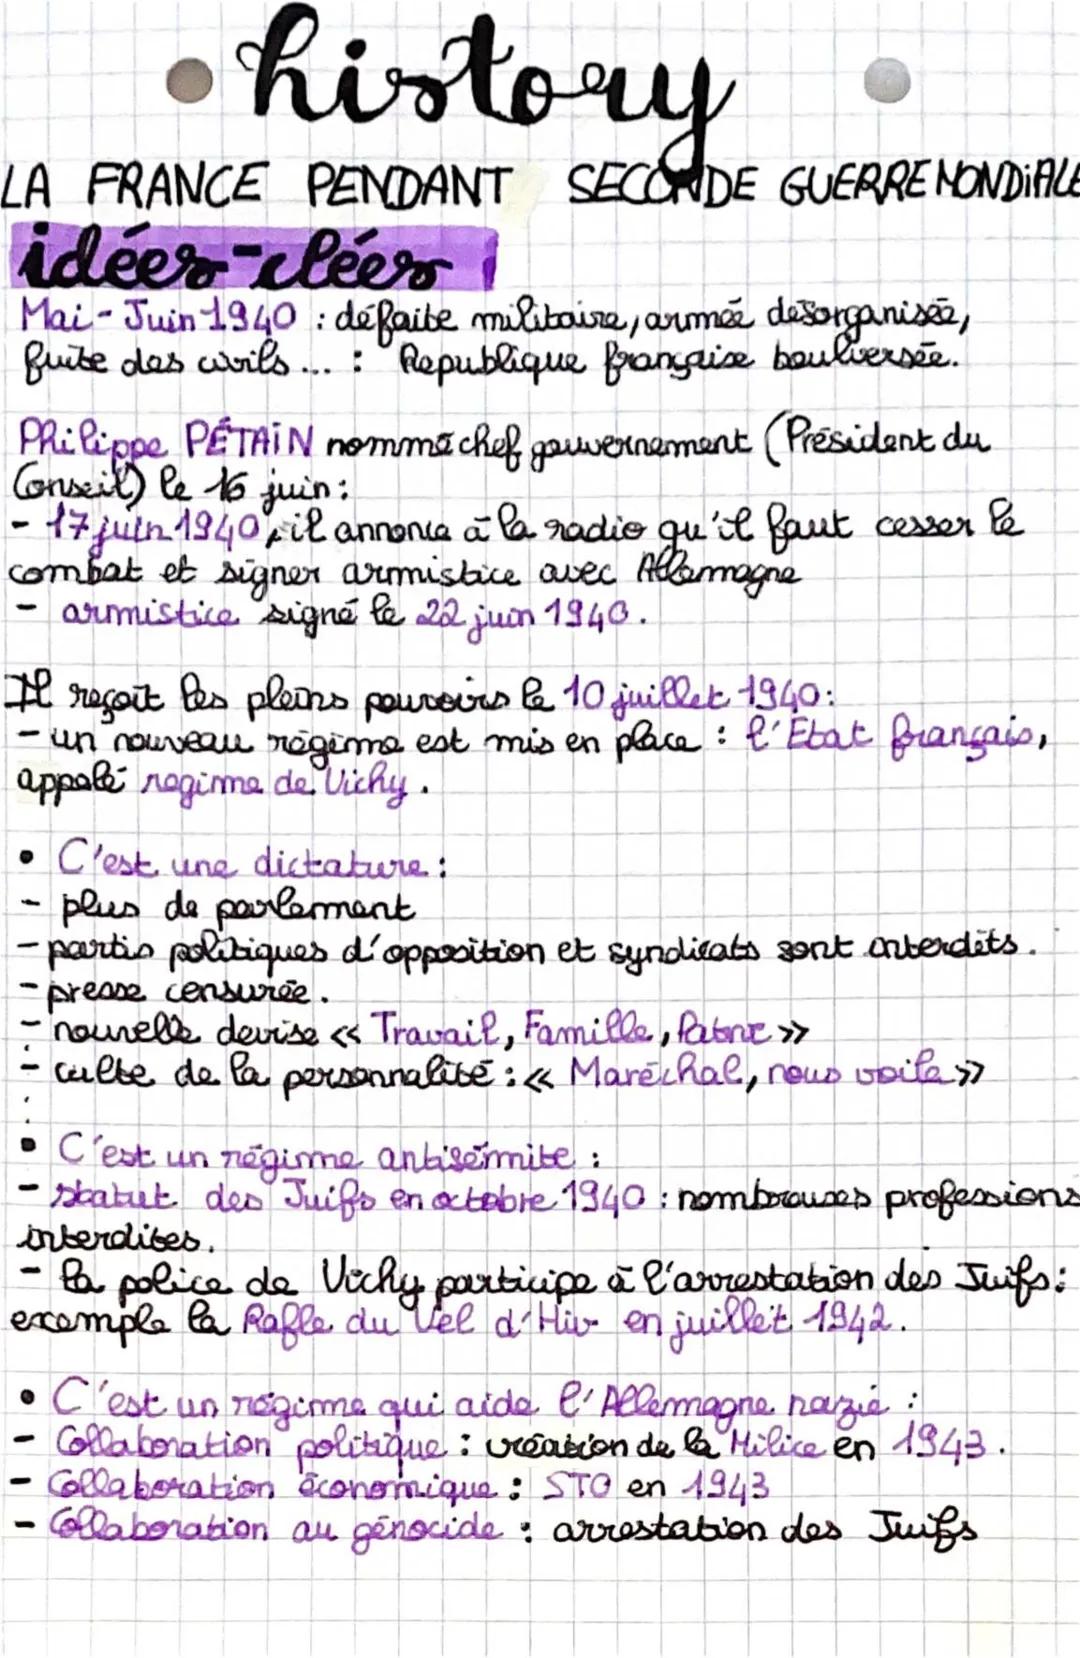 history
LA FRANCE PENDANT SECONDE GUERRE MONDIALE
idées-clées
Mai-Juin 1940 : défaite militaire, armée désorganisée,
fuite des civils... : République française boulversée.
Philippe PÉTAIN nommé chef gouvernement (Président du
Conseil) le 16 juin :
- 17 juin 1940, il annonce à la radio qu'il faut cesser le
combat et signer armistice avec Allemagne
- armistice signé le 22 juin 1940.
Il reçoit les pleins pouvoirs le 10 juillet 1940:
- un nouveau régime est mis en place : l'État français,
appelé regime de Vichy.
• C'est une dictature :
- plus de parlement
- partis politiques d'opposition et syndicats sont interdits.
- presse censurée.
- nouvelle devise << Travail, Famille, Patrie >>
- culte de la personnalité : << Maréchal, nous voila >>
• C'est un régime antisémite :
- statut des Juifs en octobre 1940 : nombreuses professions
interdites.
- la police de Vichy participe à l'arrestation des Juifs :
exemple la Rafle du Vel d'Hiv en juillet 1942.
• C'est un régime qui aide l'Allemagne nazie :
- Collaboration politique : création de la Milice en 1943.
- Collaboration économique : STO en 1943
- Collaboration au génocide : arrestation des Juifs